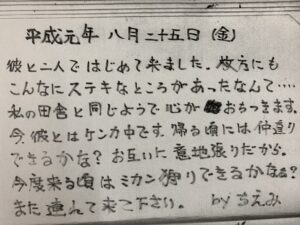 平成元年 八月二十五日 (金)
彼と二人ではじめて来ました。枚方にも
こんなにステキなところがあったなんて‥‥
私の田舎と同じようで心がおちつきます。
今、彼とはケンカ中です。帰る頃には仲直り
できるかな? お互いに意地張りだから。
今度来る頃はミカン狩りできるかなぁ?
また連れて来て下さい。 by ちえみ